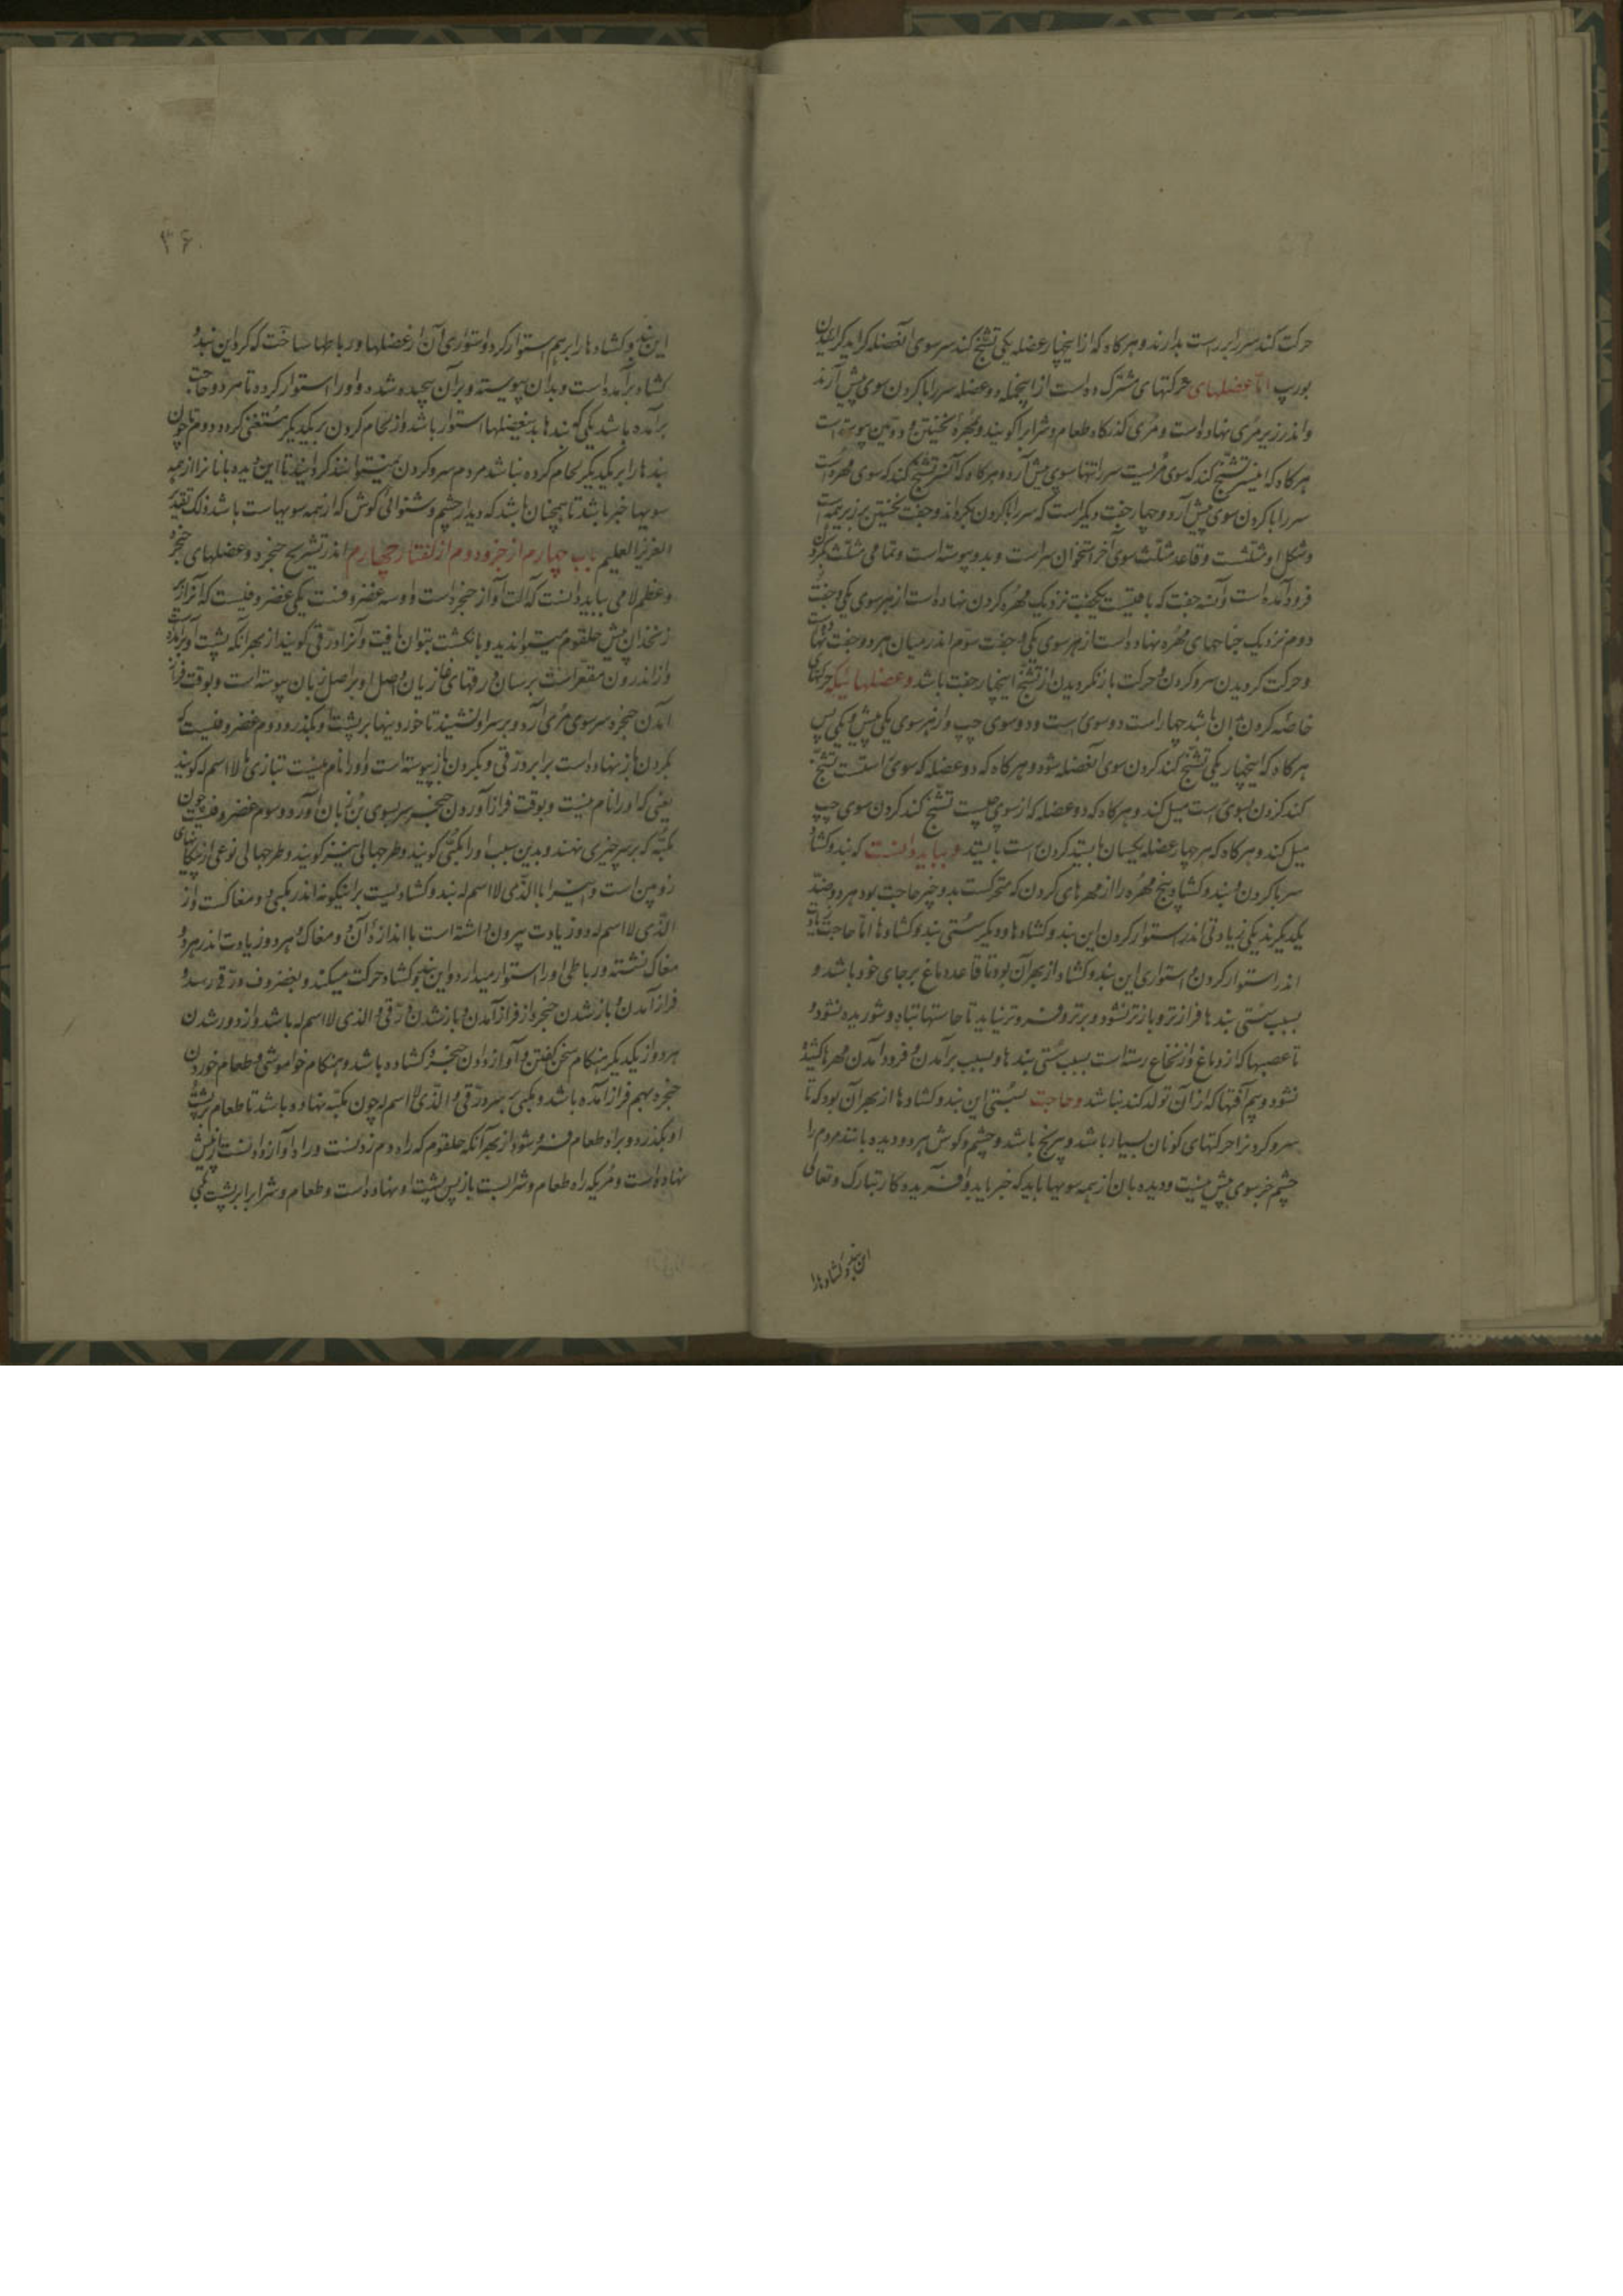 حرکت کند سر را بر راست بدارند و هر کاه که از اینچهار عضله یکی تشنج کند سر سوی آنعضله کراید کراییدن
بورب امّا عضلهای حرکتهای مشترک ده است از اینجمله دو عضله سر را با کردن سوی پیش آرند
و اندر زیر مُری نهاده است و مُری کذرکاه طعام و شراب را کویند و مُهرهٔ نخستین و دومین پیوسته است
هر کاه که سر تشنج کند که سوی مریست سر را تنها سوی پیش آرد و هر کاه که آن سر تشنج کند که سوی مهره است
سر را با کردن سوی پیش آرد و چهار جفت دیکر است که سر را با کردن بکرداند و جفت نخستین بر زبر همه است
و شکل او مثلثست و قاعده مثلث سوی آخر استخوان سر است و بدو پیوسته است و تمامی مثلث بکردن
فرود آمده است و آن سه جفت که باقیست یکجفت نزدیک مهره کردن نهاده است از هر سوی یکی و جفت
دوم نزدیک جناحهای مهره نهاده است از هر سوی یکی و جفت سوّم اندر میان هر دو جفت نهاده است
و حرکت کردیدن سر و کردن و حرکت باز نکریدن از تشنج اینچهار جفت باشد و عضلهائیکه حرکتهای
خاصّه کردن بدان باشد چهار است دو سوی راست و دو سوی چپ و از هر سوی یکی پیش و یکی پس
هر کاه که اینچهار یکی تشنج کند کردن سوی آنعضله شود و هر کاه که دو عضله که سوی راستست تشنج
کند کردن بسوی راست میل کند و هر کاه که دو عضله که از سوی چپست تشنج کند کردن سوی چپ
میل کند و هر کاه که هر چهار عضله یکسان بایستد کردن راست بایستد و بباید دانست که بند و کشاد
سر با کردن و بند و کشاد پنج مهره را از مهرهای کردن که متحرکست بدو چیز حاجت بود هر دو ضدّ
یکدیکرند یکی زیادتی اندر استوار کردن این بند و کشادها و دیکر سُستی بند و کشادها امّا حاجت زیادت
اندر استوار کردن و استواری این بند و کشاد از بهر آن بود تا قاعده دماغ بر جای خود باشد و
بسبب سُستی بندها فرازتر و بازتر نشود و برتر و فروتر نیاید تا حاستها تباه و شوریده نشود و
تا عصبها که از دماغ و از نخاع رسته است بسبب سُستی بندها و بسبب برآمدن و فرود آمدن مهرها کشیده
نشود و بیم آفتها که از آن تولد کند نباشد و حاجت بسُستی این بند و کشادها از بهر آن بود که تا
سر و کردنرا حرکتهای کونان بسیار باشد و بی رنج باشد و چشم و کوش هر دو دیده بانند مردم را
چشم جز سوی پیش نیست و دیده بان از همه سویها باید که خبر یابد و آفریدکار تبارک و تعالی
این بند و کشادها را
۳۶
این بند و کشادها را بر هم استوار کرد و استواری آن از عضلها و رباطها ساخت که کرد این بند و
کشاد برآمده است و بدان پیوسته و بر آن پیچیده شده و او را استوار کرده تا هر دو حاجت
برآمده باشد یکی که بندها بدین عضلها استوار باشد و از لحام کردن بر یکدیکر مُستغنی کردد و دوم تا چون
بندها را بر یکدیکر لحام کرده نباشد مردم سر و کردن میتوانند کردانید تا این دیده بانانرا از همه
سویها خبر باشد تا همچنان باشد که دیدار چشم و شنوائی کوش که از همه سویها است باشد ذلک تقدیر
العزیز العلیم باب چهارم از جزو دوم از کفتار چهارم اندر تشریح حنجره و عضلهای حنجره
و عظم لامی بباید دانست که آلت آواز حنجره است و او سه غضروفست یکی غضروفیست که آنرا زیر
زنخدان پیش حلقوم میتوان دید و بانکشت بتوان یافت و آنرا درقی کویند از بهر آنکه پشت او برآمده است
و از اندرون مقعّر است بر سان درقهای غازیان و اصل او بر اصل زبان پیوسته است و بوقت فراز
آمدن حنجره سر سوی مُری آرد و بر سر او نشیند تا خوردنیها بر پشت او بکذرد و دوم غضروفیست که
بکردن باز نهاده است برابر درقی و بکردن باز پیوسته است و او را نام نیست بتازی لا اسم له کویند
یعنی که او را نام نیست و بوقت فراز آوردن حنجره سر بسوی بن زبان آورد و سوم غضروفیست چون
مکبّه که بر سر چیزی نهند و بدین سبب او را مکبّی کویند و طرجهالی نیز کویند و طرجهالی نوعی از پیکانهای
زوبین است و او را با الذّی لا اسم له بند و کشادیست برینکونه اندر مکبّی دو مغاکست و از
الذّی لا اسم له دو زیادت بیرون داشته است با اندازهٔ آن دو مغاک و هر دو زیادت اندر هر دو
مغاک نشسته و رباطی او را استوار میدارد و این بند و کشاد حرکت میکند و بغضروف درقی رسد و
فراز آمدن و باز شدن حنجره از فراز آمدن و باز شدن درّقی و الذی لا اسم له باشد و از دور شدن
هر دو از یکدیکر هنکام سخن کفتن و آواز دادن حنجره کشاده باشد و هنکام خاموشی و طعام خوردن
حنجره بهم فراز آمده باشد و مکبّی بر سر درّقی و الذّی لا اسم له چون مکبّه نهاده باشد تا طعام بر پشت
او بکذرد و براه طعام فرو شود از بهر آنکه حلقوم که راه دم زدنست و راه آواز دادنست از پیش
نهاده است و مُری که راه طعام و شرابست باز پس پشت او نهاده است و طعام و شراب را بر پشت مکبّی